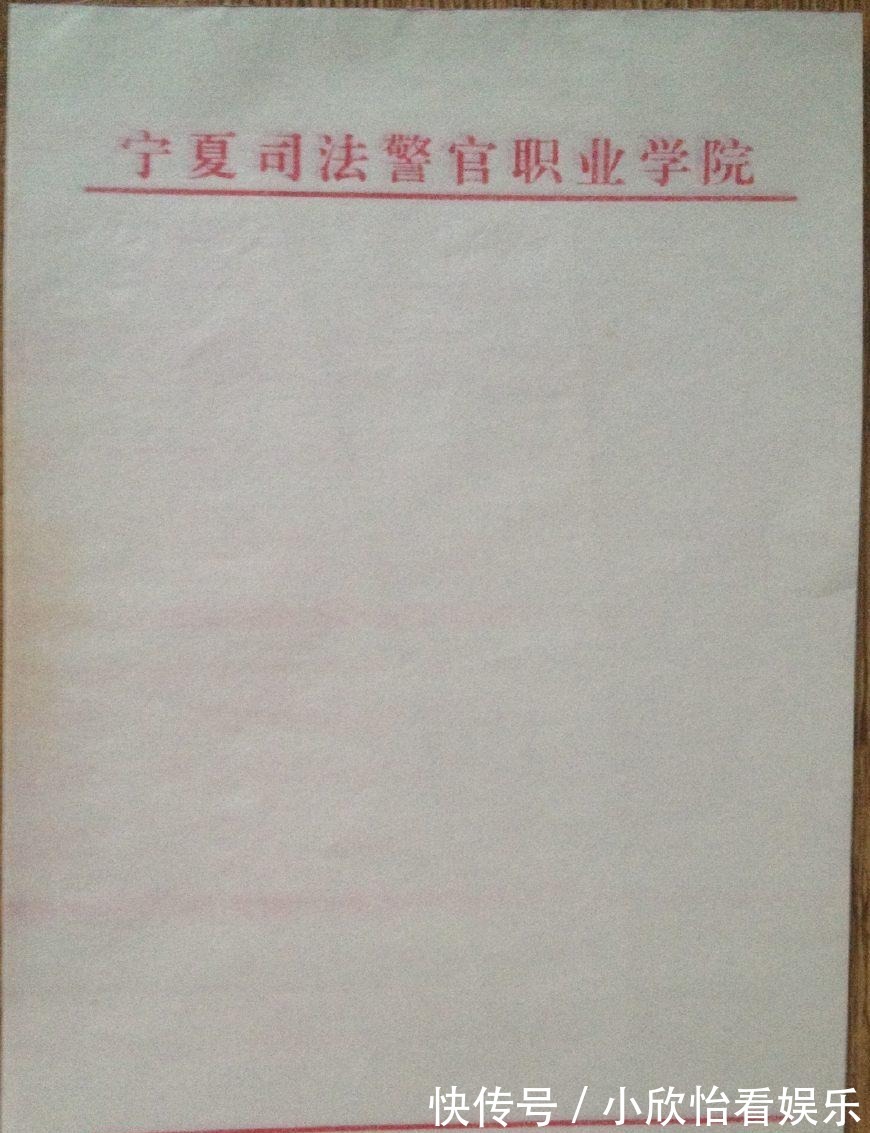 宁夏司法警官职业学院
快传号 / 小欣怡看娱乐